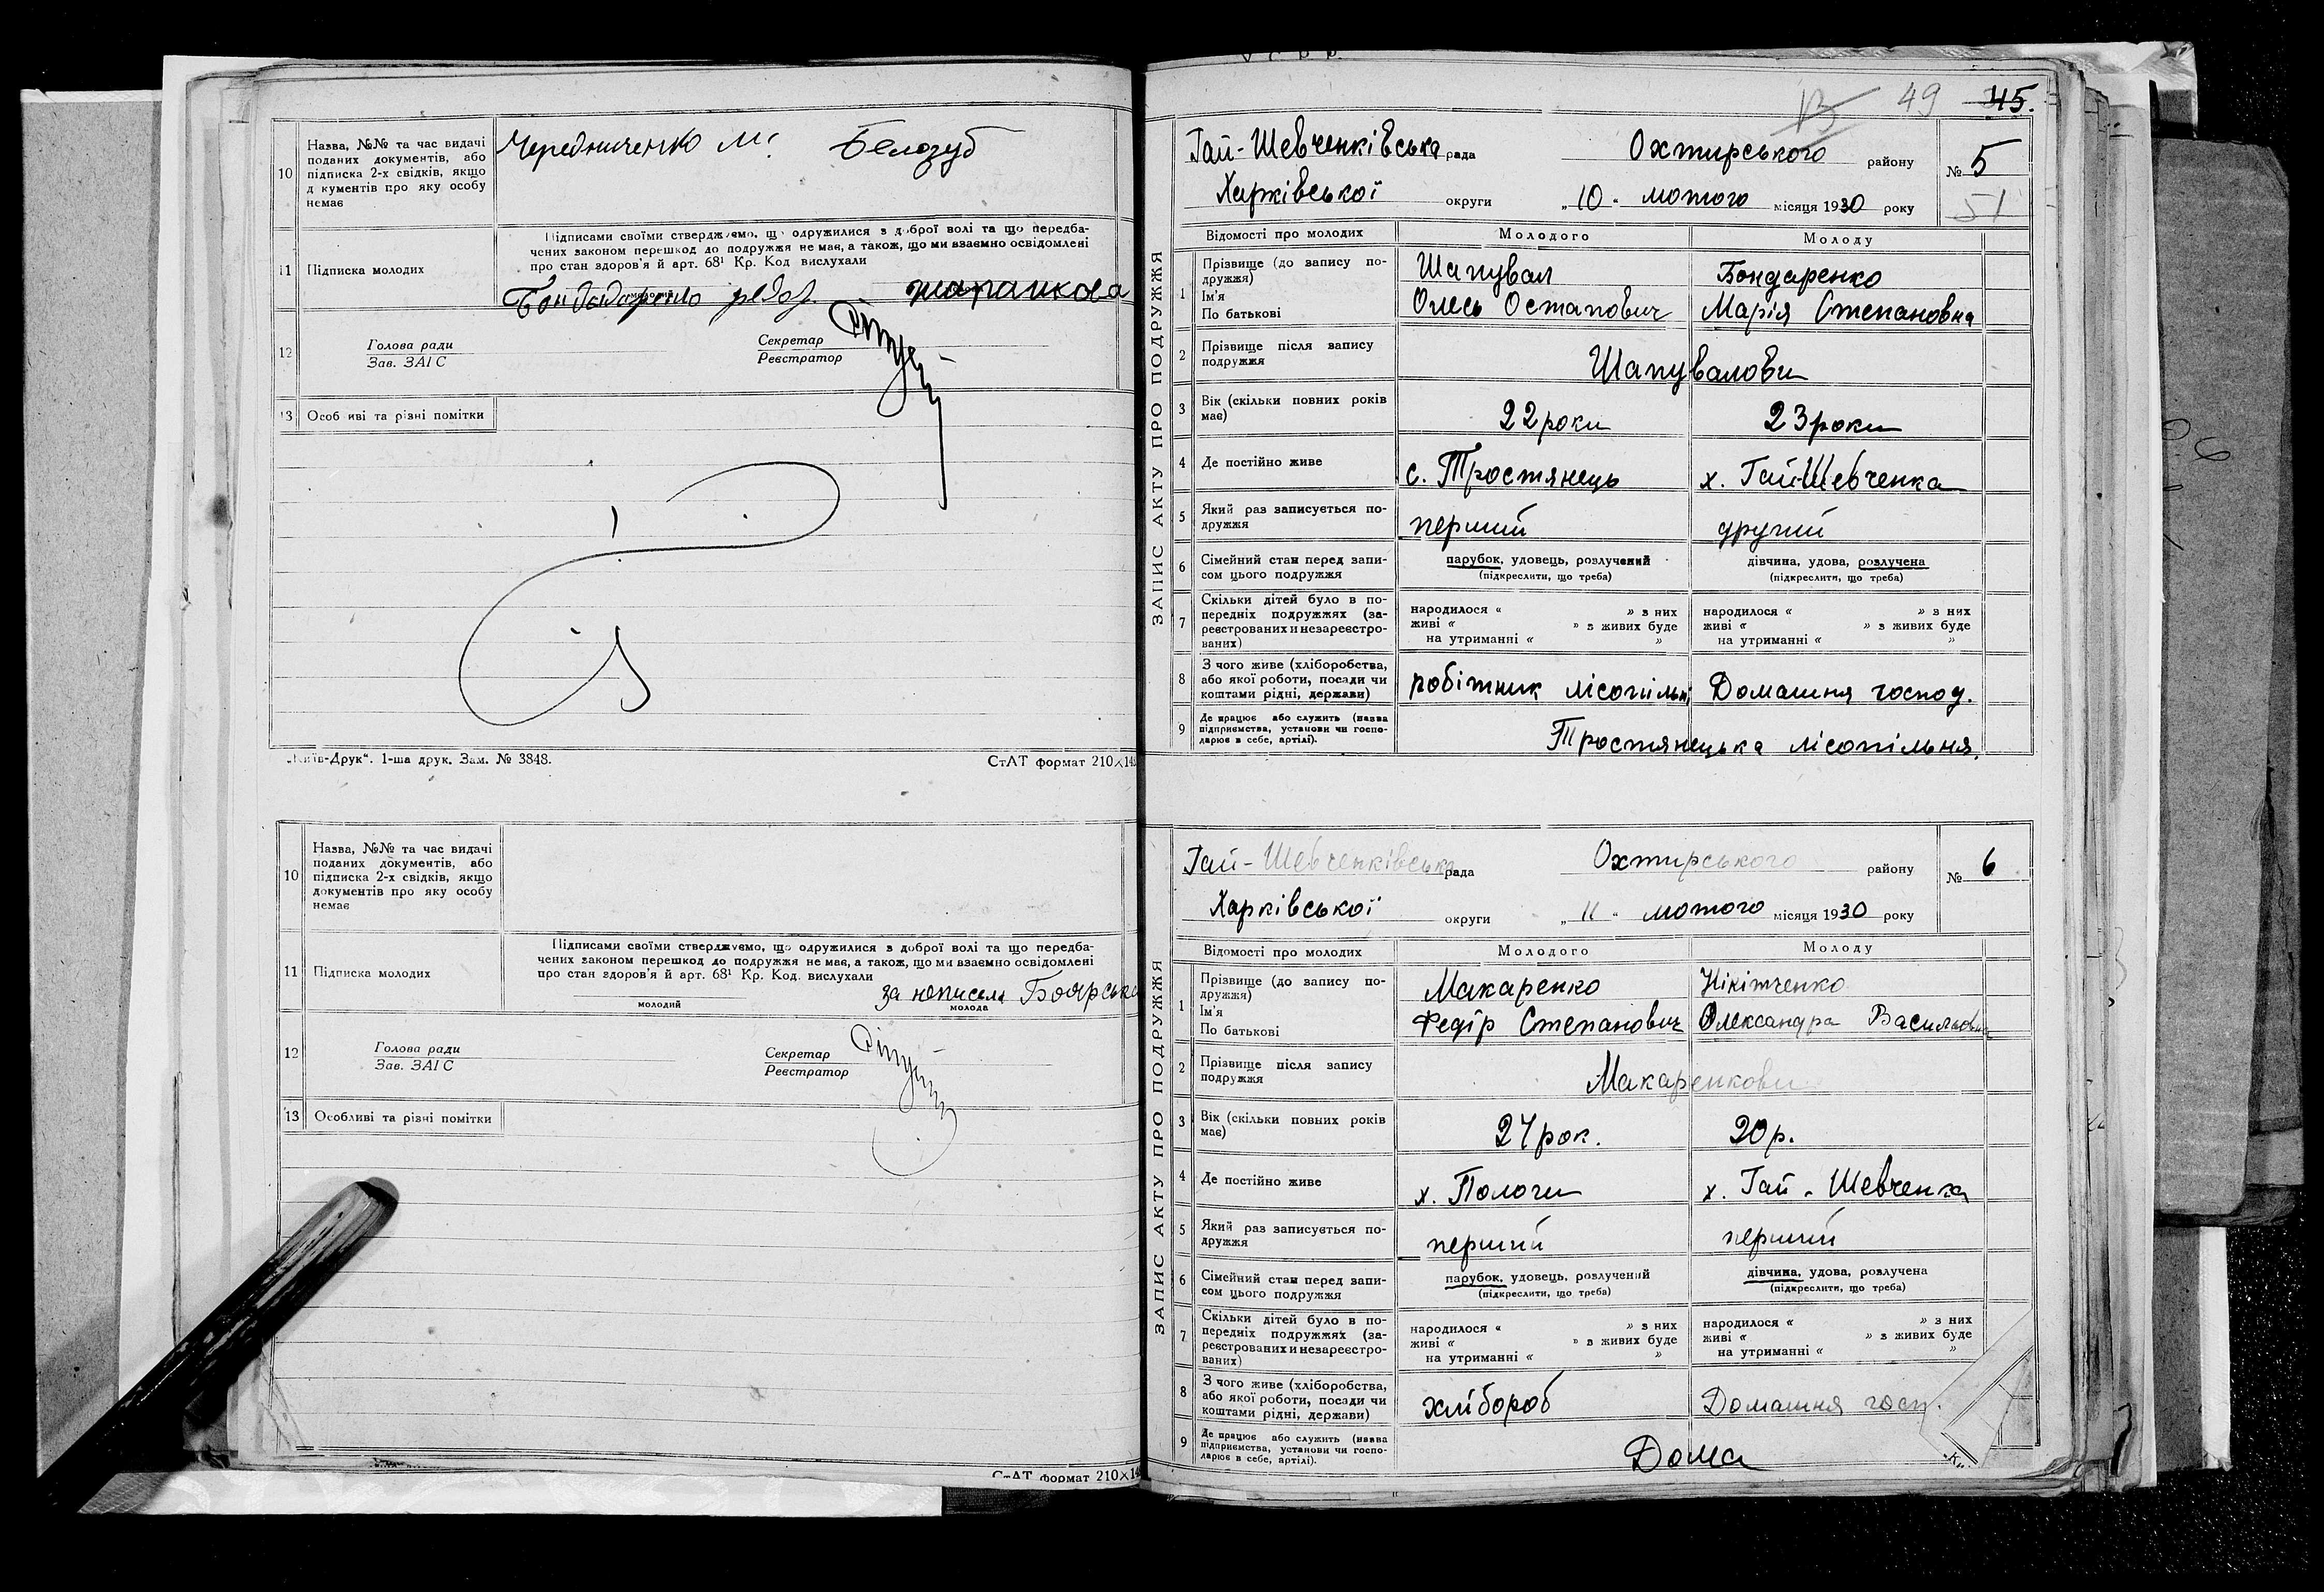 10
Назва, №№ та час видачі
поданих документів, або
підписка 2-х свідків, якщо
д кументів про яку особу
немає
Чередниченко М. Белозуб
11
Підписка молодих
Підписами своїми стверджуємо, що одружилися з доброї волі та що передба-
чених законом перешкод до подружжя не має, а також, що ми взаємно освідомлені
про стан здоров'я й арт. 68¹ Кр. Код вислухали
12
Голова ради
Зав. ЗАГС
Секретар
Реєстратор
13
Особ иві та різні помітки
„Київ-Друк“. 1-ша друк. Зам. № 3848.
СтАТ формат 210×14
10
Назва, №№ та час видачі
поданих документів, або
підписка 2-х свідків, якщо
документів про яку особу
немає
11
Підписка молодих
Підписами своїми стверджуємо, що одружилися з доброї волі та що передба-
чених законом перешкод до подружжя не має, а також, що ми взаємно освідомлені
про стан здоров'я й арт. 68¹ Кр. Код. вислухали
за Боярська
молодий молода
12
Голова ради
Зав. ЗАГС
Секретар
Реєстратор
13
Особливі та різні помітки
СтАТ формат 210×14
49 45.
ЗАПИС АКТУ ПРО ПОДРУЖЖЯ
Гай-Шевченківська рада Охтирського району № 5
Харківської округи „10“ лютого місяця 1930 року 51
Відомості про молодих Молодого Молоду
1
Прізвище (до запису по-
дружжя) Шапувал Бондаренко
Ім'я
По батькові Олесь Остапович Марія Степановна
2
Прізвище після запису
подружжя Шапувалови
3
Вік (скільки повних років
має) 22 роки 23 роки
4
Де постійно живе с. Тростянець х. Гай-Шевченка
5
Який раз записується по-
дружжя перший другий
6
Сімейний стан перед запи-
сом цього подружжя
парубок, удовець, розлучений
(підкреслити, що треба)
дівчина, удова, розлучена
(підкреслити, що треба)
7
Скільки дітей було в по-
передніх подружжях (за-
реєстрованих и незареєстро-
ваних)
народилося « » з них
живі « » з живих буде
на утриманні « »
народилося « » з них
живі « » з живих буде
на утриманні « »
8
З чого живе (хліборобства,
або якої роботи, посади чи
коштами рідні, держави)
робітник лісопільні Домашня господ.
9
Де працює або служить (назва
підприємства, установи чи госпо-
дарює в себе, артілі).
Тростянецька лісопільня.
ЗАПИС АКТУ ПРО ПОДРУЖЖЯ
Гай-Шевченківська рада Охтирського району № 6
Харківської округи „11“ лютого місяця 1930 року
Відомості про молодих Молодого Молоду
1
Прізвище (до запису по-
дружжя) Макаренко Нікітченко
Ім'я
По батькові Федір Степанович Олександра Васильовна
2
Прізвище після запису
подружжя Макаренкови
3
Вік (скільки повних років
має) 24 рок. 20 р.
4
Де постійно живе х. Пологи х. Гай-Шевченка
5
Який раз записується по-
дружжя перший перший
6
Сімейний стан перед запи-
сом цього подружжя
парубок, удовець, розлучений
(підкреслити, що треба)
дівчина, удова, розлучена
(підкреслити, що треба)
7
Скільки дітей було в по-
передніх подружжях (за-
реєстрованих и незареєстро-
ваних)
народилося « » з них
живі « » з живих буде
на утриманні « »
народилося « » з них
живі « » з живих буде
на утриманні « »
8
З чого живе (хліборобства,
або якої роботи, посади чи
коштами рідні, держави)
хлібороб Домашня госп.
9
Де працює або служить (назва
підприємства, установи чи госпо-
дарює в себе, артілі).
Дома